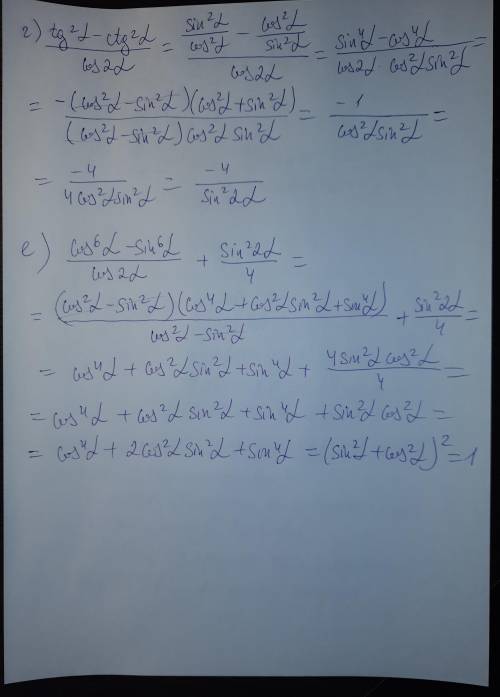 г) (tg²α - ctg²α)/(cos2α) = (sin²α/cos²α - cos²α/sin²α)/(cos2α) = (sin⁴α - cos⁴α)/(cos2α · cos²α sin²α) =
= (-(cos²α - sin²α)(cos²α + sin²α))/((cos²α - sin²α) cos²α sin²α) = (-1)/(cos²α sin²α) =
= (-4)/(4cos²α sin²α) = (-4)/(sin²2α)
е) (cos⁶α - sin⁶α)/(cos2α) + (sin²2α)/4 =
= ((cos²α - sin²α)(cos⁴α + cos²α sin²α + sin⁴α))/(cos²α - sin²α) + (sin²2α)/4 =
= cos⁴α + cos²α sin²α + sin⁴α + (4sin²α cos²α)/4 =
= cos⁴α + cos²α sin²α + sin⁴α + sin²α cos²α =
= cos⁴α + 2cos²α sin²α + sin⁴α = (sin²α + cos²α)² = 1